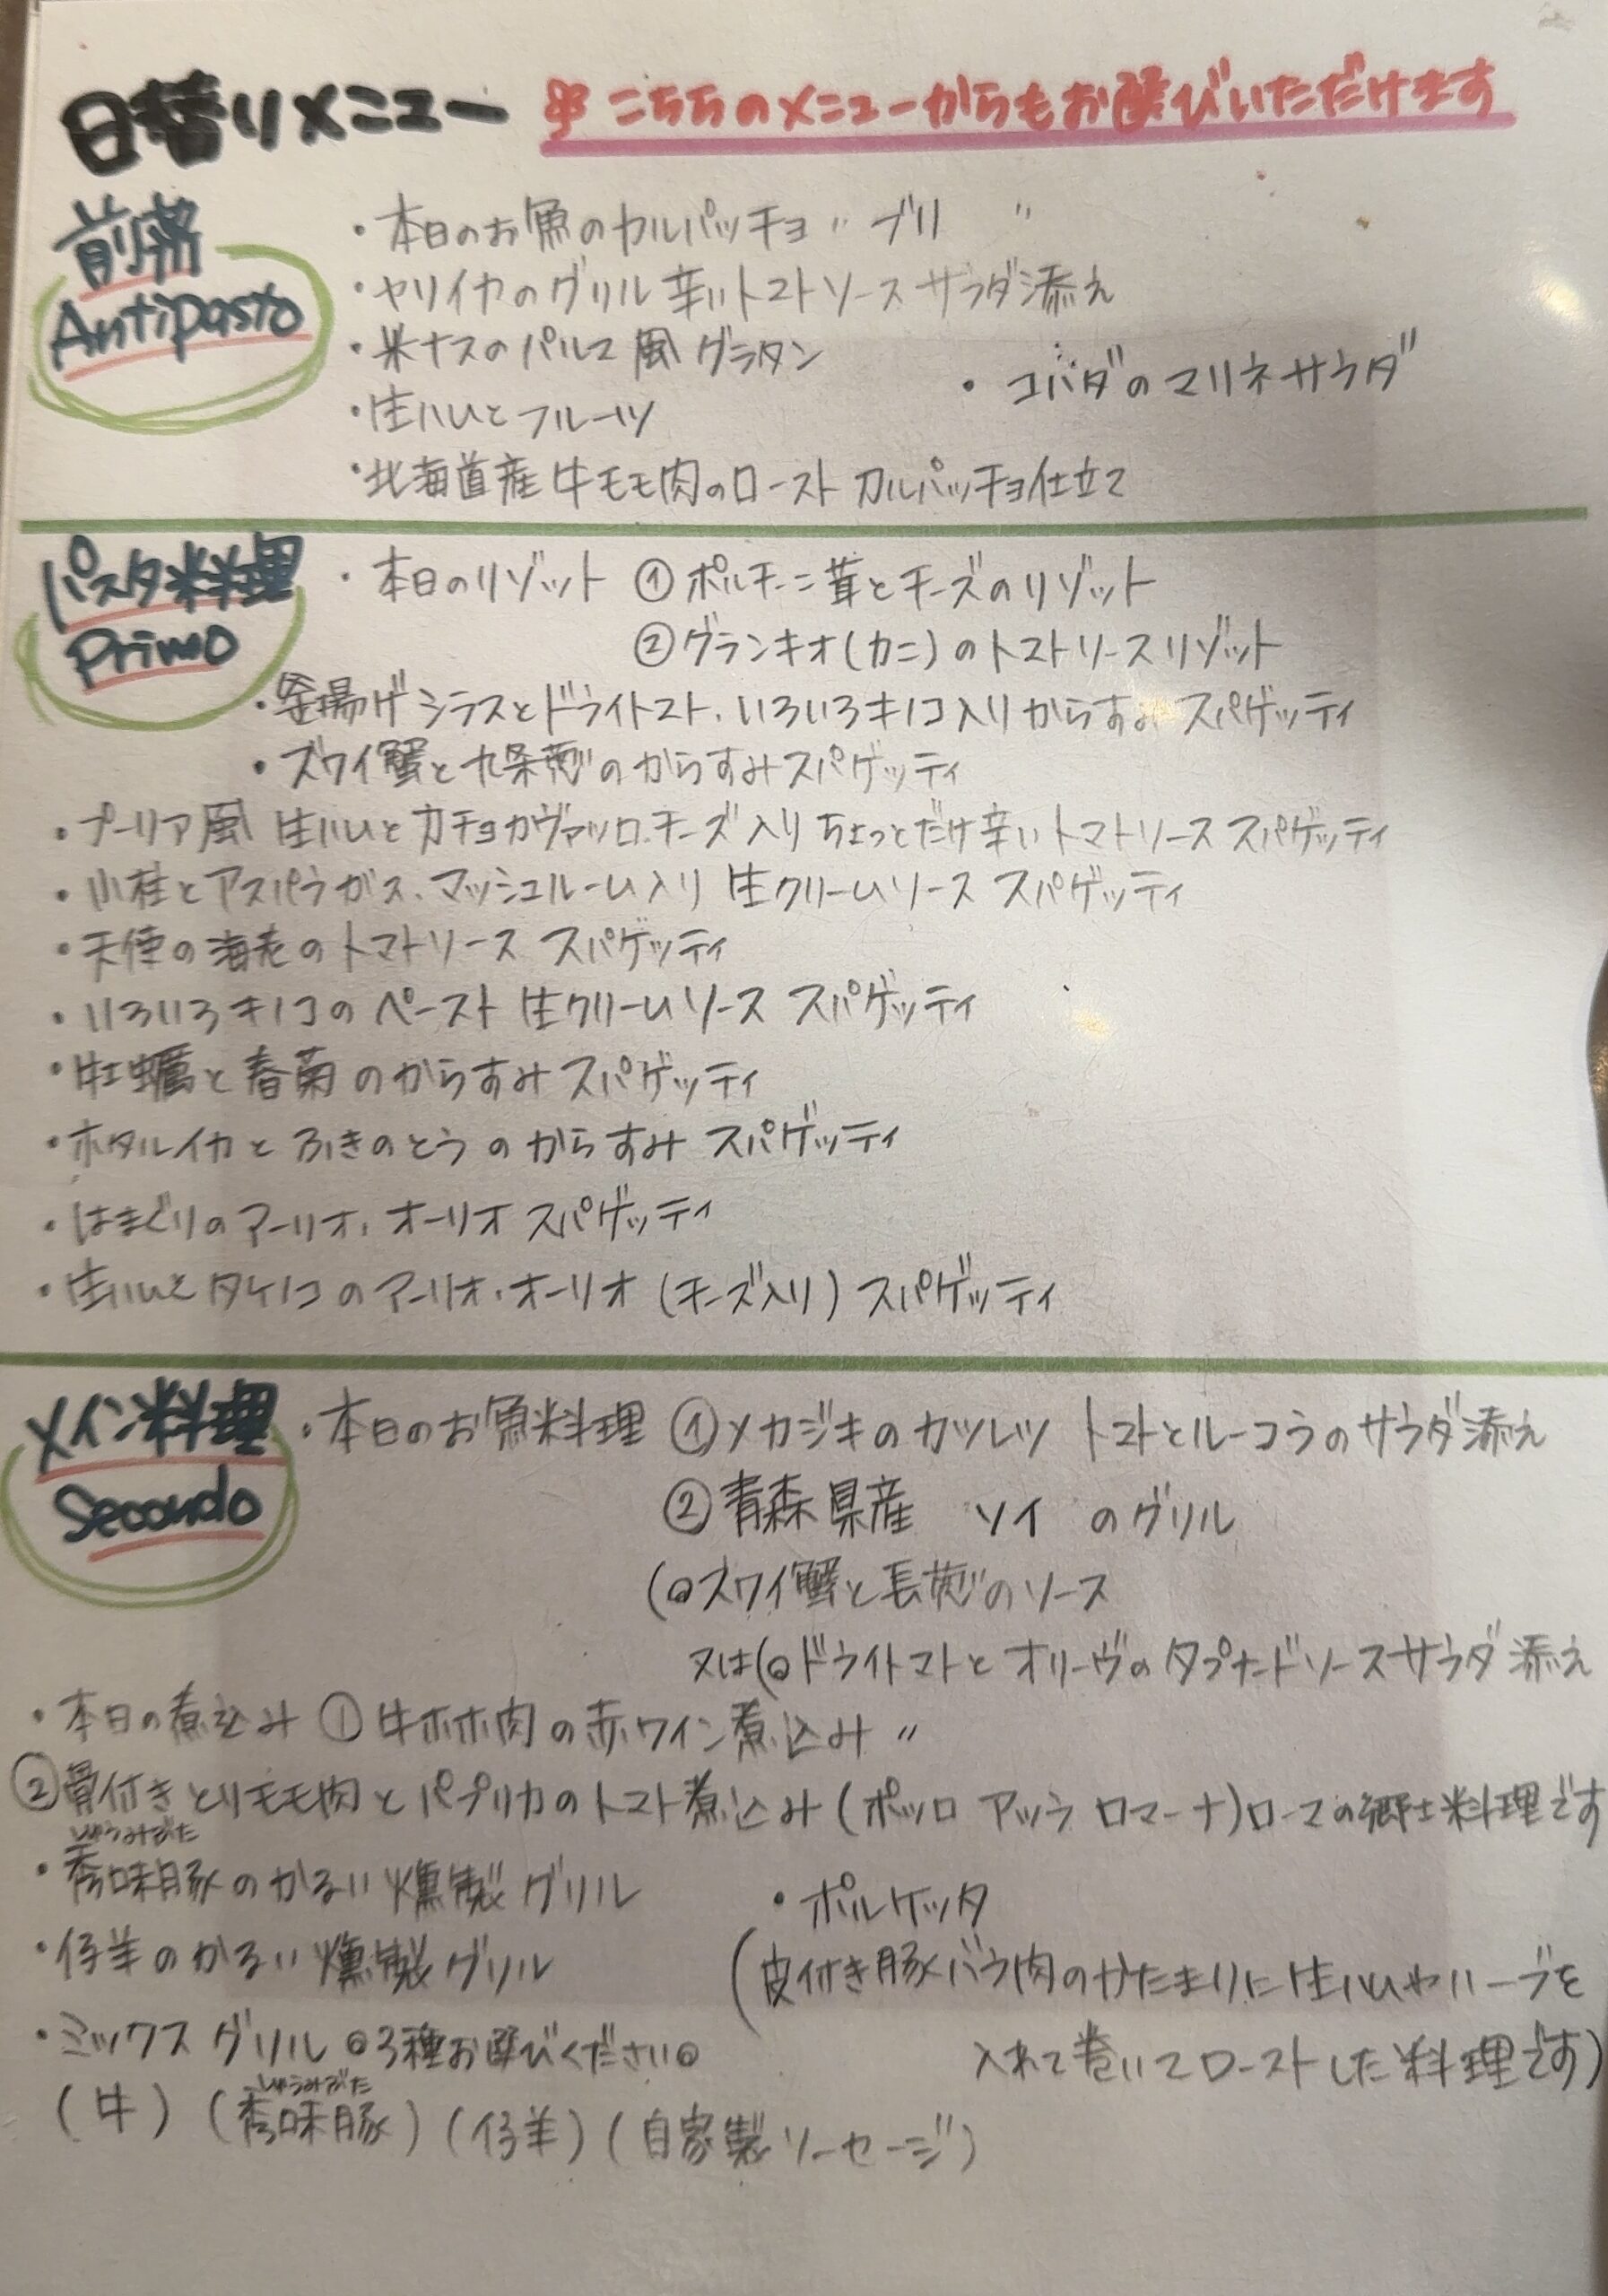 日替りメニュー ※こちらのメニューからもお選びいただけます
前菜
Antipasto
・本日のお魚のカルパッチョ〃ブリ〃
・ヤリイカのグリル 辛いトマトソース サラダ添え
・米ナスのパルマ風グラタン
・コハダのマリネサラダ
・生ハムとフルーツ
・北海道産牛モモ肉のロースト カルパッチョ仕立て
パスタ料理
Primo
・本日のリゾット ①ポルチーニ茸とチーズのリゾット
②グランキオ(カニ)のトマトソースリゾット
・釜揚げシラスとドライトマト、いろいろキノコ入りからすみスパゲッティ
・ズワイ蟹と九条葱のからすみスパゲッティ
・プーリア風 生ハムとカチョカヴァッロチーズ入りちょっとだけ辛いトマトソース スパゲッティ
・小柱とアスパラガス、マッシュルーム入り 生クリームソース スパゲッティ
・天使の海老のトマトソース スパゲッティ
・いろいろキノコのペースト 生クリームソース スパゲッティ
・牡蠣と春菊のからすみスパゲッティ
・ホタルイカとふきのとうのからすみ スパゲッティ
・はまぐりのアーリオ・オーリオ スパゲッティ
・生ハムとタケノコのアーリオ・オーリオ(チーズ入り)スパゲッティ
メイン料理
Secondo
・本日のお魚料理 ①メカジキのカツレツ トマトとルーコラのサラダ添え
②青森県産 ソイ のグリル
(◎ズワイ蟹と長葱のソース
又は(◎ドライトマトとオリーヴのタプナードソースサラダ添え
・本日の煮込み ①牛ホホ肉の赤ワイン煮込み〃
②骨付きとりモモ肉とパプリカのトマト煮込み(ポッロ アッラ ロマーナ)ローマの郷土料理です
しゅうみぶた
・秀味豚のかるい燻製グリル
・仔羊のかるい燻製グリル
・ミックスグリル◎3種お選びください◎
しゅうみぶた
(牛)(秀味豚)(仔羊)(自家製ソーセージ)
・ポルケッタ
(皮付き豚バラ肉のかたまりに生ハムやハーブを
入れて巻いてローストした料理です)